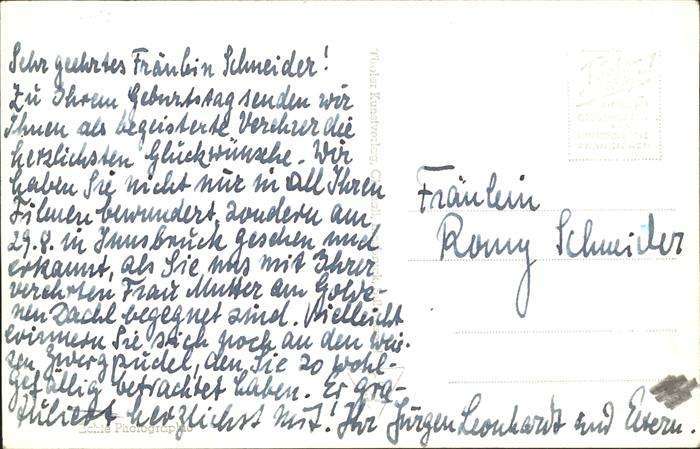 Sehr geehrtes Fräulein Schneider!
Zu Ihrem Geburtstag senden wir
Ihnen als begeisterte Verehrer die
herzlichsten Glückwünsche. Wir
haben Sie nicht nur in all Ihren
Filmen bewundert, sondern am
29.8. in Innsbruck gesehen und
erkannt, als Sie uns mit Ihrer
verehrten Frau Mutter am Golde-
nen Dachl begegnet sind. Vielleicht
erinnern Sie sich noch an den weis-
sen Zwergpudel, den Sie so wohl-
gefällig betrachtet haben. Er gra-
tuliert herzlichst mit! Ihr Jürgen Leonhardt und Eltern.
Echte Photographie
Tiroler Kunstverlag
Fräulein
Romy Schneider